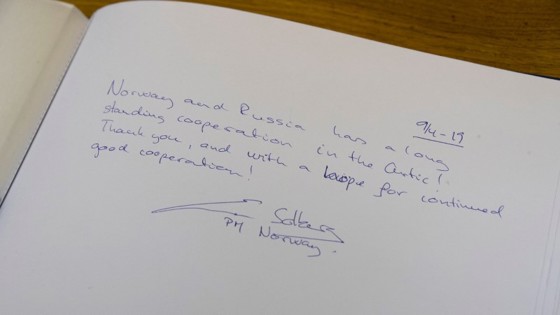 9/4-19
Norway and Russia has a long
standing cooperation in the Arctic!
Thank you, and with a hope for continued
good cooperation!
Solberg
PM Norway.